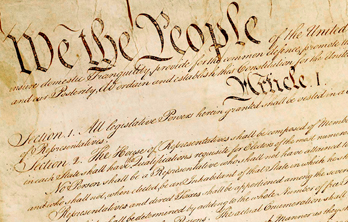 We the People of the United
insure domestic Tranquility, provide for the common defence, promote the
and our Posterity, do ordain and establish this Constitution for the United
Article. I.
Section. 1. All legislative Powers herein granted shall be vested in a
of Representatives.
Section. 2. The House of Representatives shall be composed of Members
in each State shall have the Qualifications requisite for Electors of the most numerous
No Person shall be a Representative who shall not have attained to
and who shall not, when elected, be an Inhabitant of that State in which he shall
Representatives and direct Taxes shall be apportioned among the several
shall be determined by adding to the whole Number of free
The actual Enumeration shall